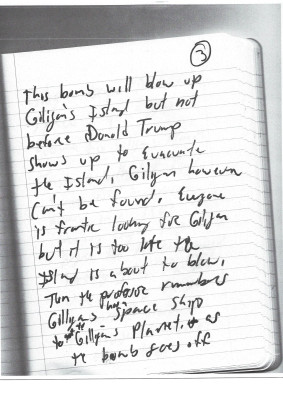 3
This bomb will blow up
Gilligan's Island but not
before Donald Trump
shows up to Evacuate
the Island, Gilligan however
Can't be found. Everyone
is frantic looking for Gilligan
but it is too late the
Island is about to blow,
Then the professor remembers
Gilligan's Space Ship
to Gilligan's Planet, as
the bomb goes off